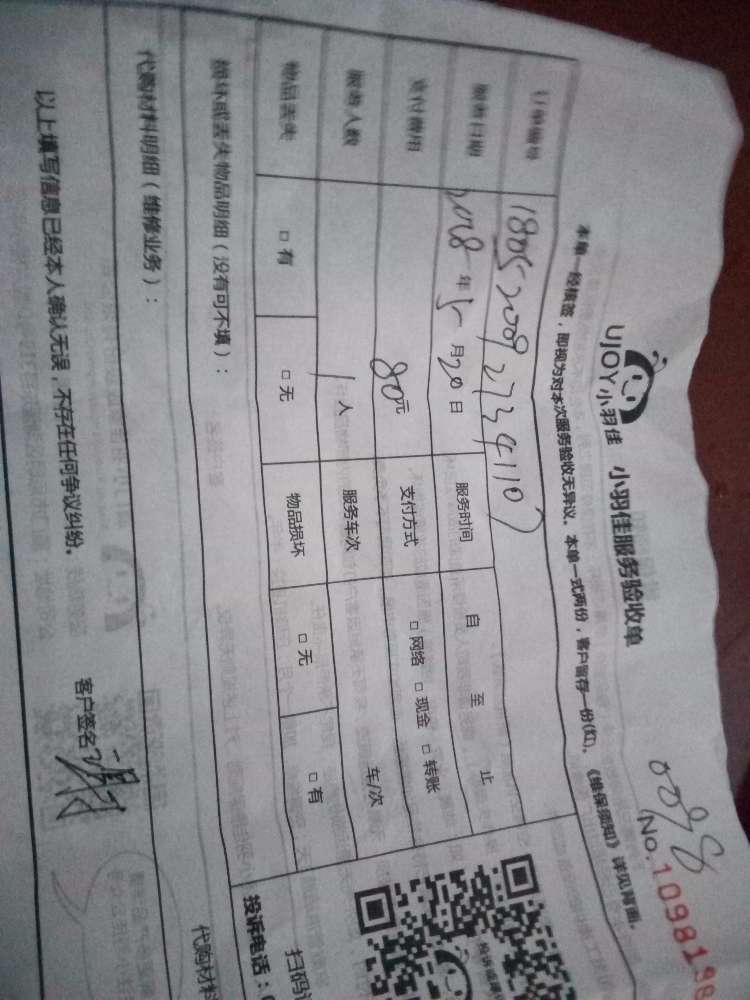 0098
No.1098198
UJOY小羽佳 小羽佳服务验收单
本单一经核签，即视为对本次服务验收无异议。本单一式两份，客户留存一份(红)。《维保须知》详见背面。
订单编号 1805200927341107
服务日期 2018年5月20日 服务时间 自 至 止
支付费用 80元 支付方式 □网络 □现金 □转账
服务人数 1人 服务车次 车/次
物品丢失 □有 □无 物品损坏 □无 □有
损坏或丢失物品明细（没有可不填）：
代购材料明细（维修业务）：
代购材料
以上填写信息已经本人确认无误，不存在任何争议纠纷。
客户签名
扫码
投诉电话：